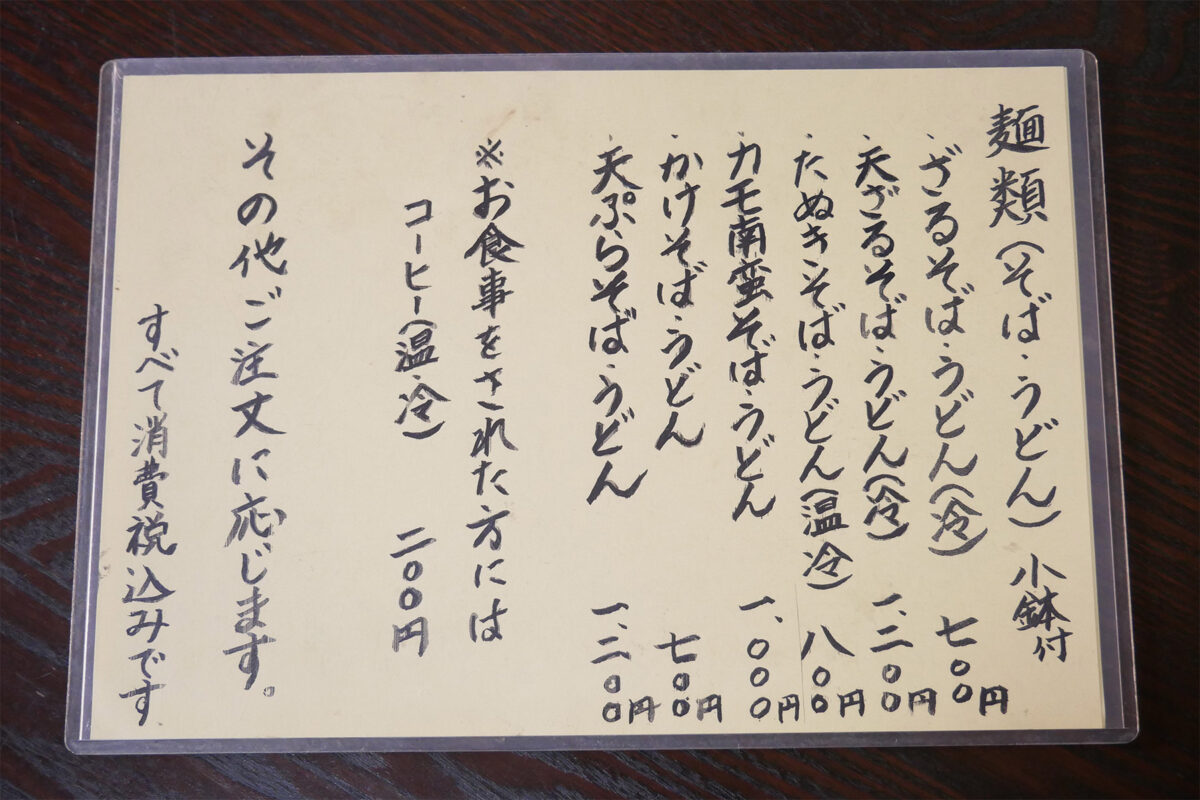 麺類(そば・うどん)小鉢付
・ざるそば・うどん(冷) 七〇〇円
・天ざるそば・うどん(冷) 一、二〇〇円
・たぬきそば・うどん(温冷) 八〇〇円
・カモ南蛮そば・うどん 一、〇〇〇円
・かけそば・うどん 七〇〇円
・天ぷらそば・うどん 一、二〇〇円
※お食事をされた方には
コーヒー(温冷) 二〇〇円
その他ご注文に応じます。
すべて消費税込みです。